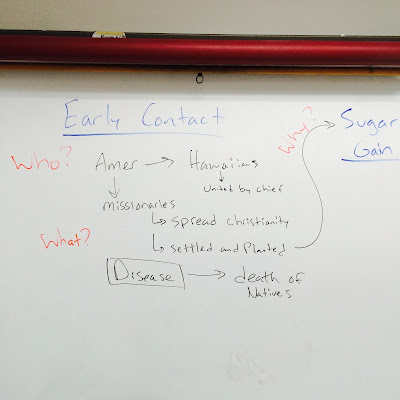 Early Contact
Why?
Sugar
Gain
Who? Amer → Hawaiias
↓ ↓
missionaries United by chief
↳ spread christianity
What? ↳ settled and Planted
Disease → death of
Natives